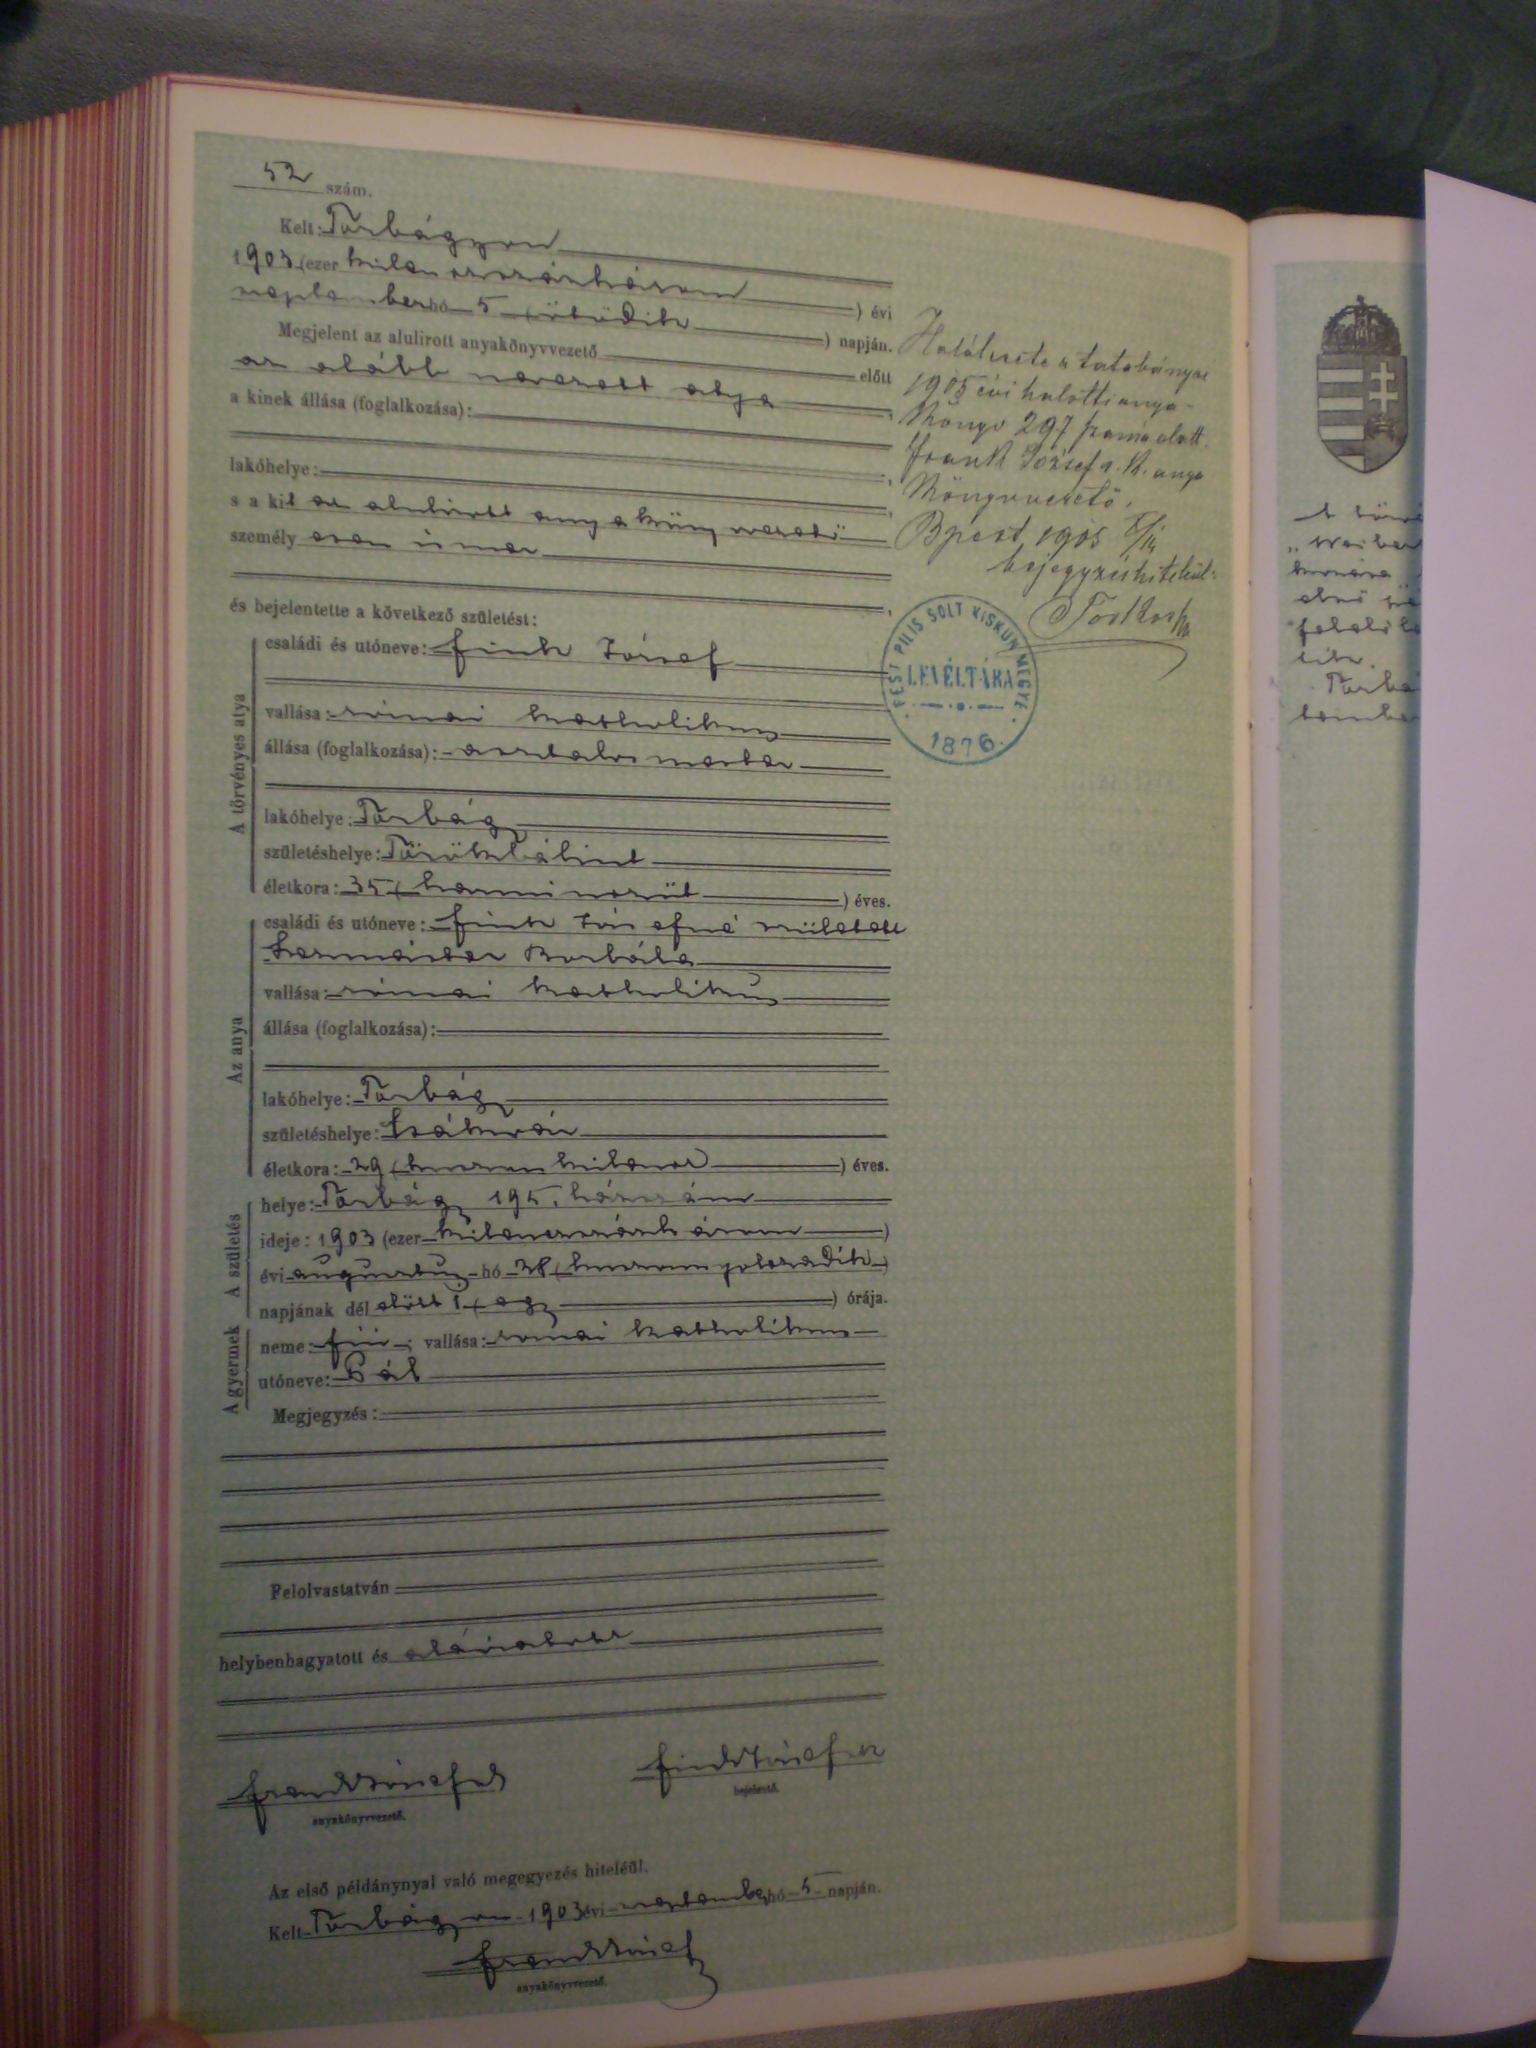 52 szám.
Kelt: Torbágyon
1903 (ezer kilenczszázhárom ) évi
szeptember hó 5 (ötödik ) napján.
Megjelent az alulirott anyakönyvvezető előtt
az alább nevezett atya
a kinek állása (foglalkozása):
lakóhelye:
s a kit az alulirott anyakönyvvezető
személyesen ismer
és bejelentette a következő születést:
A törvényes atya
családi és utóneve: Fink József
vallása: római katholikus
állása (foglalkozása): asztalos mester
lakóhelye: Torbágy
születéshelye: Törökbálint
életkora: 35 (harminczöt ) éves.
Az anya
családi és utóneve: Fink Józsefné született
Borbála
vallása: római katholikus
állása (foglalkozása):
lakóhelye: Torbágy
születéshelye:
életkora: 29 (huszonkilencz ) éves.
A születés
helye: Torbágy 195. házszám
ideje: 1903 (ezer kilenczszázhárom )
évi augusztus hó 28 (huszonnyolczadik )
napjának dél előtt 1 (egy ) órája.
A gyermek
neme: fiú ; vallása: római katholikus
utóneve: Pál
Megjegyzés:
Felolvastatván
helybenhagyatott és aláiratott
Frank József
anyakönyvvezető.
Fink József
bejelentő.
Az első példánynyal való megegyezés hiteléül.
Kelt Torbágyon 1903 évi szeptember hó 5 napján.
Frank József
anyakönyvvezető.
Halálesete a tatabányai
1905 évi halotti anya-
könyv 297 száma alatt.
Frank József a. k. anya
könyvvezető.
Bpest, 1905
bejegyzés hiteléül:
PEST PILIS SOLT KISKUN MEGYE
LEVÉLTÁRA
1876.